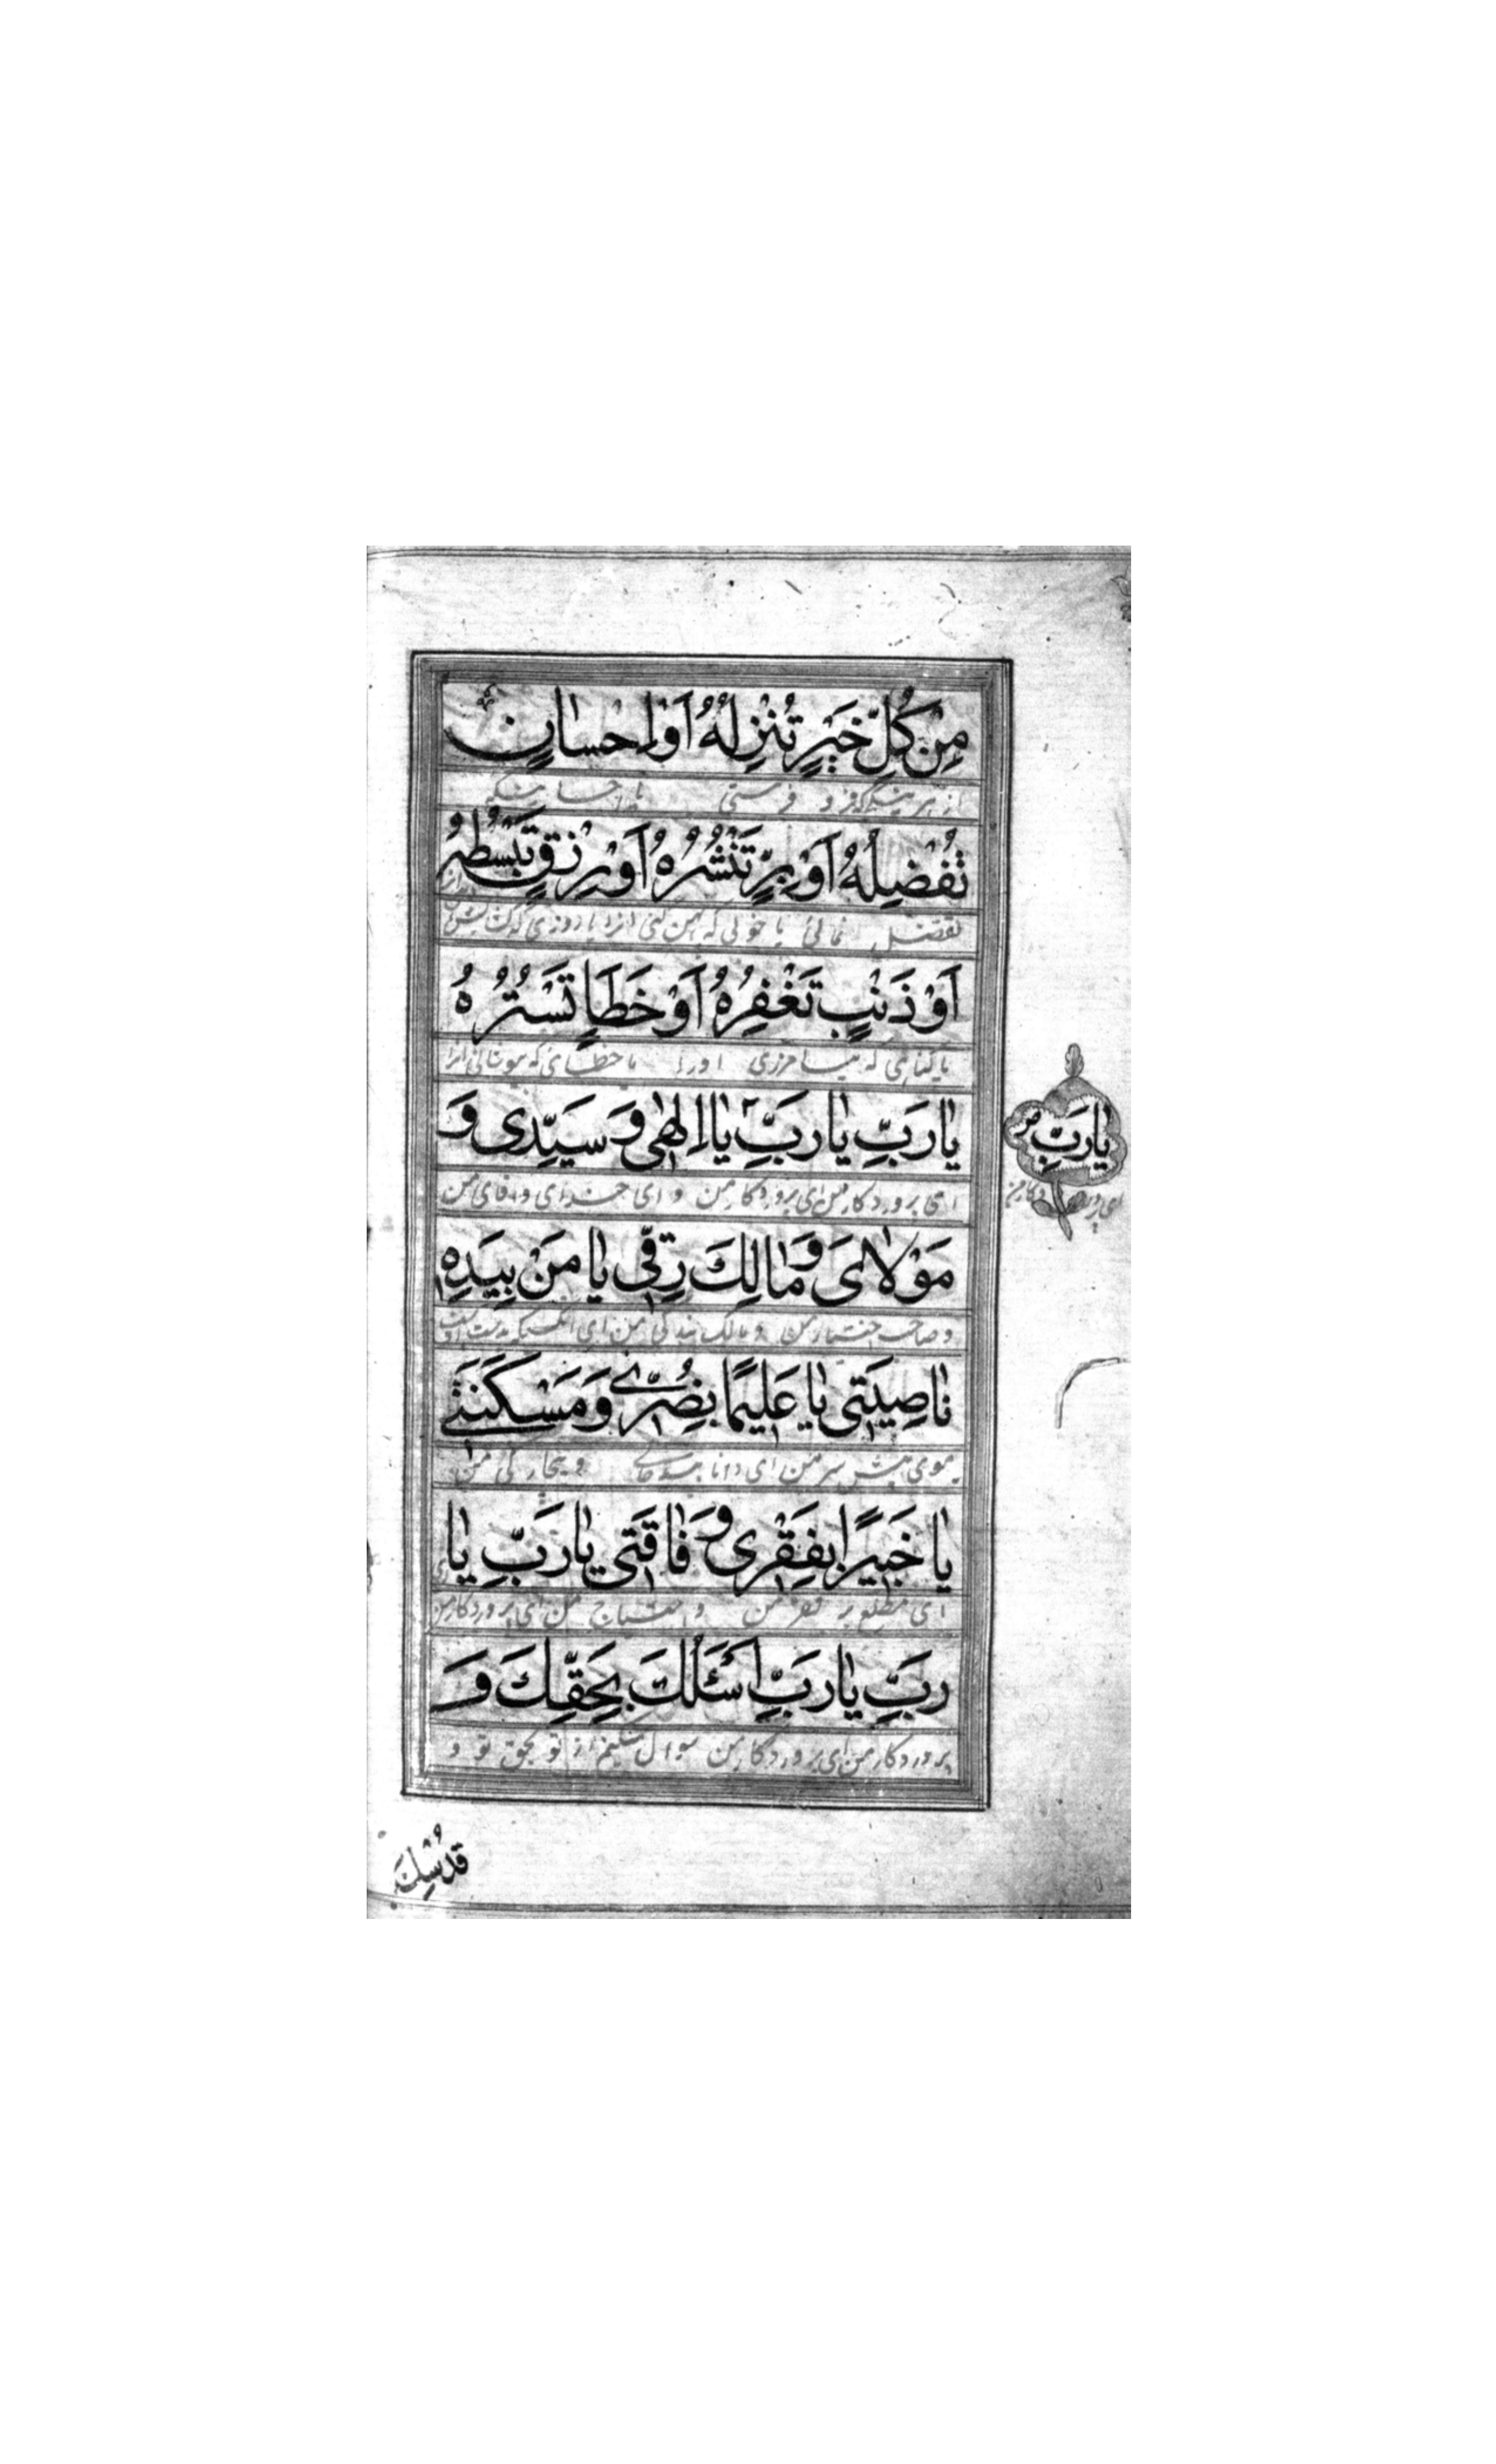 مِنْ كُلِّ خَيْرٍ تُنْزِلُهُ اَوْ اِحْسٰانٍ
از هر فرستی یا احسانیکه
تُفْضِلُهُ اَوْ بِرٍّ تَنْشُرُهُ اَوْ رِزْقٍ تَبْسُطُهُ
تفضل نمائی یا خوبی که پهن کنی انرا یا روزی که
اَوْ ذَنْبٍ تَغْفِرُهُ اَوْ خَطَاٍ تَسْتُرُهُ
یا کناهی که بیامرزی اورا یا خطائی که بپوشانی انرا
يٰا رَبِّ يٰا رَبِّ يٰا اِلٰهٖي وَ سَيِّدِى وَ
ای پروردکار من ای پروردکار من و ای خدای و اقای من
يٰا رَبِّ
ای پروردکار من
مَوْلٰاىَ وَ مٰالِكَ رِقّٖي يٰا مَنْ بِيَدِهٖ
و صاحب اختیار من و مالک بندکی من ای انکسیکه بدست اوست
نٰاصِيَتٖي يٰا عَلٖيمًا بِضُرّٖي وَ مَسْكَنَتٖي
موی پیش سر من ای دانا و بیچارکی من
يٰا خَبٖيرًا بِفَقْرٖى وَ فٰاقَتٖي يٰا رَبِّ يٰا
ای مطلع بر فقر من و احتیاج من ای پروردکار من
رَبِّ يٰا رَبِّ اَسْئَلُكَ بِحَقِّكَ وَ
پروردکار من ای پروردکار من سوال میکنم از تو بحق تو و
قُدْسِكَ